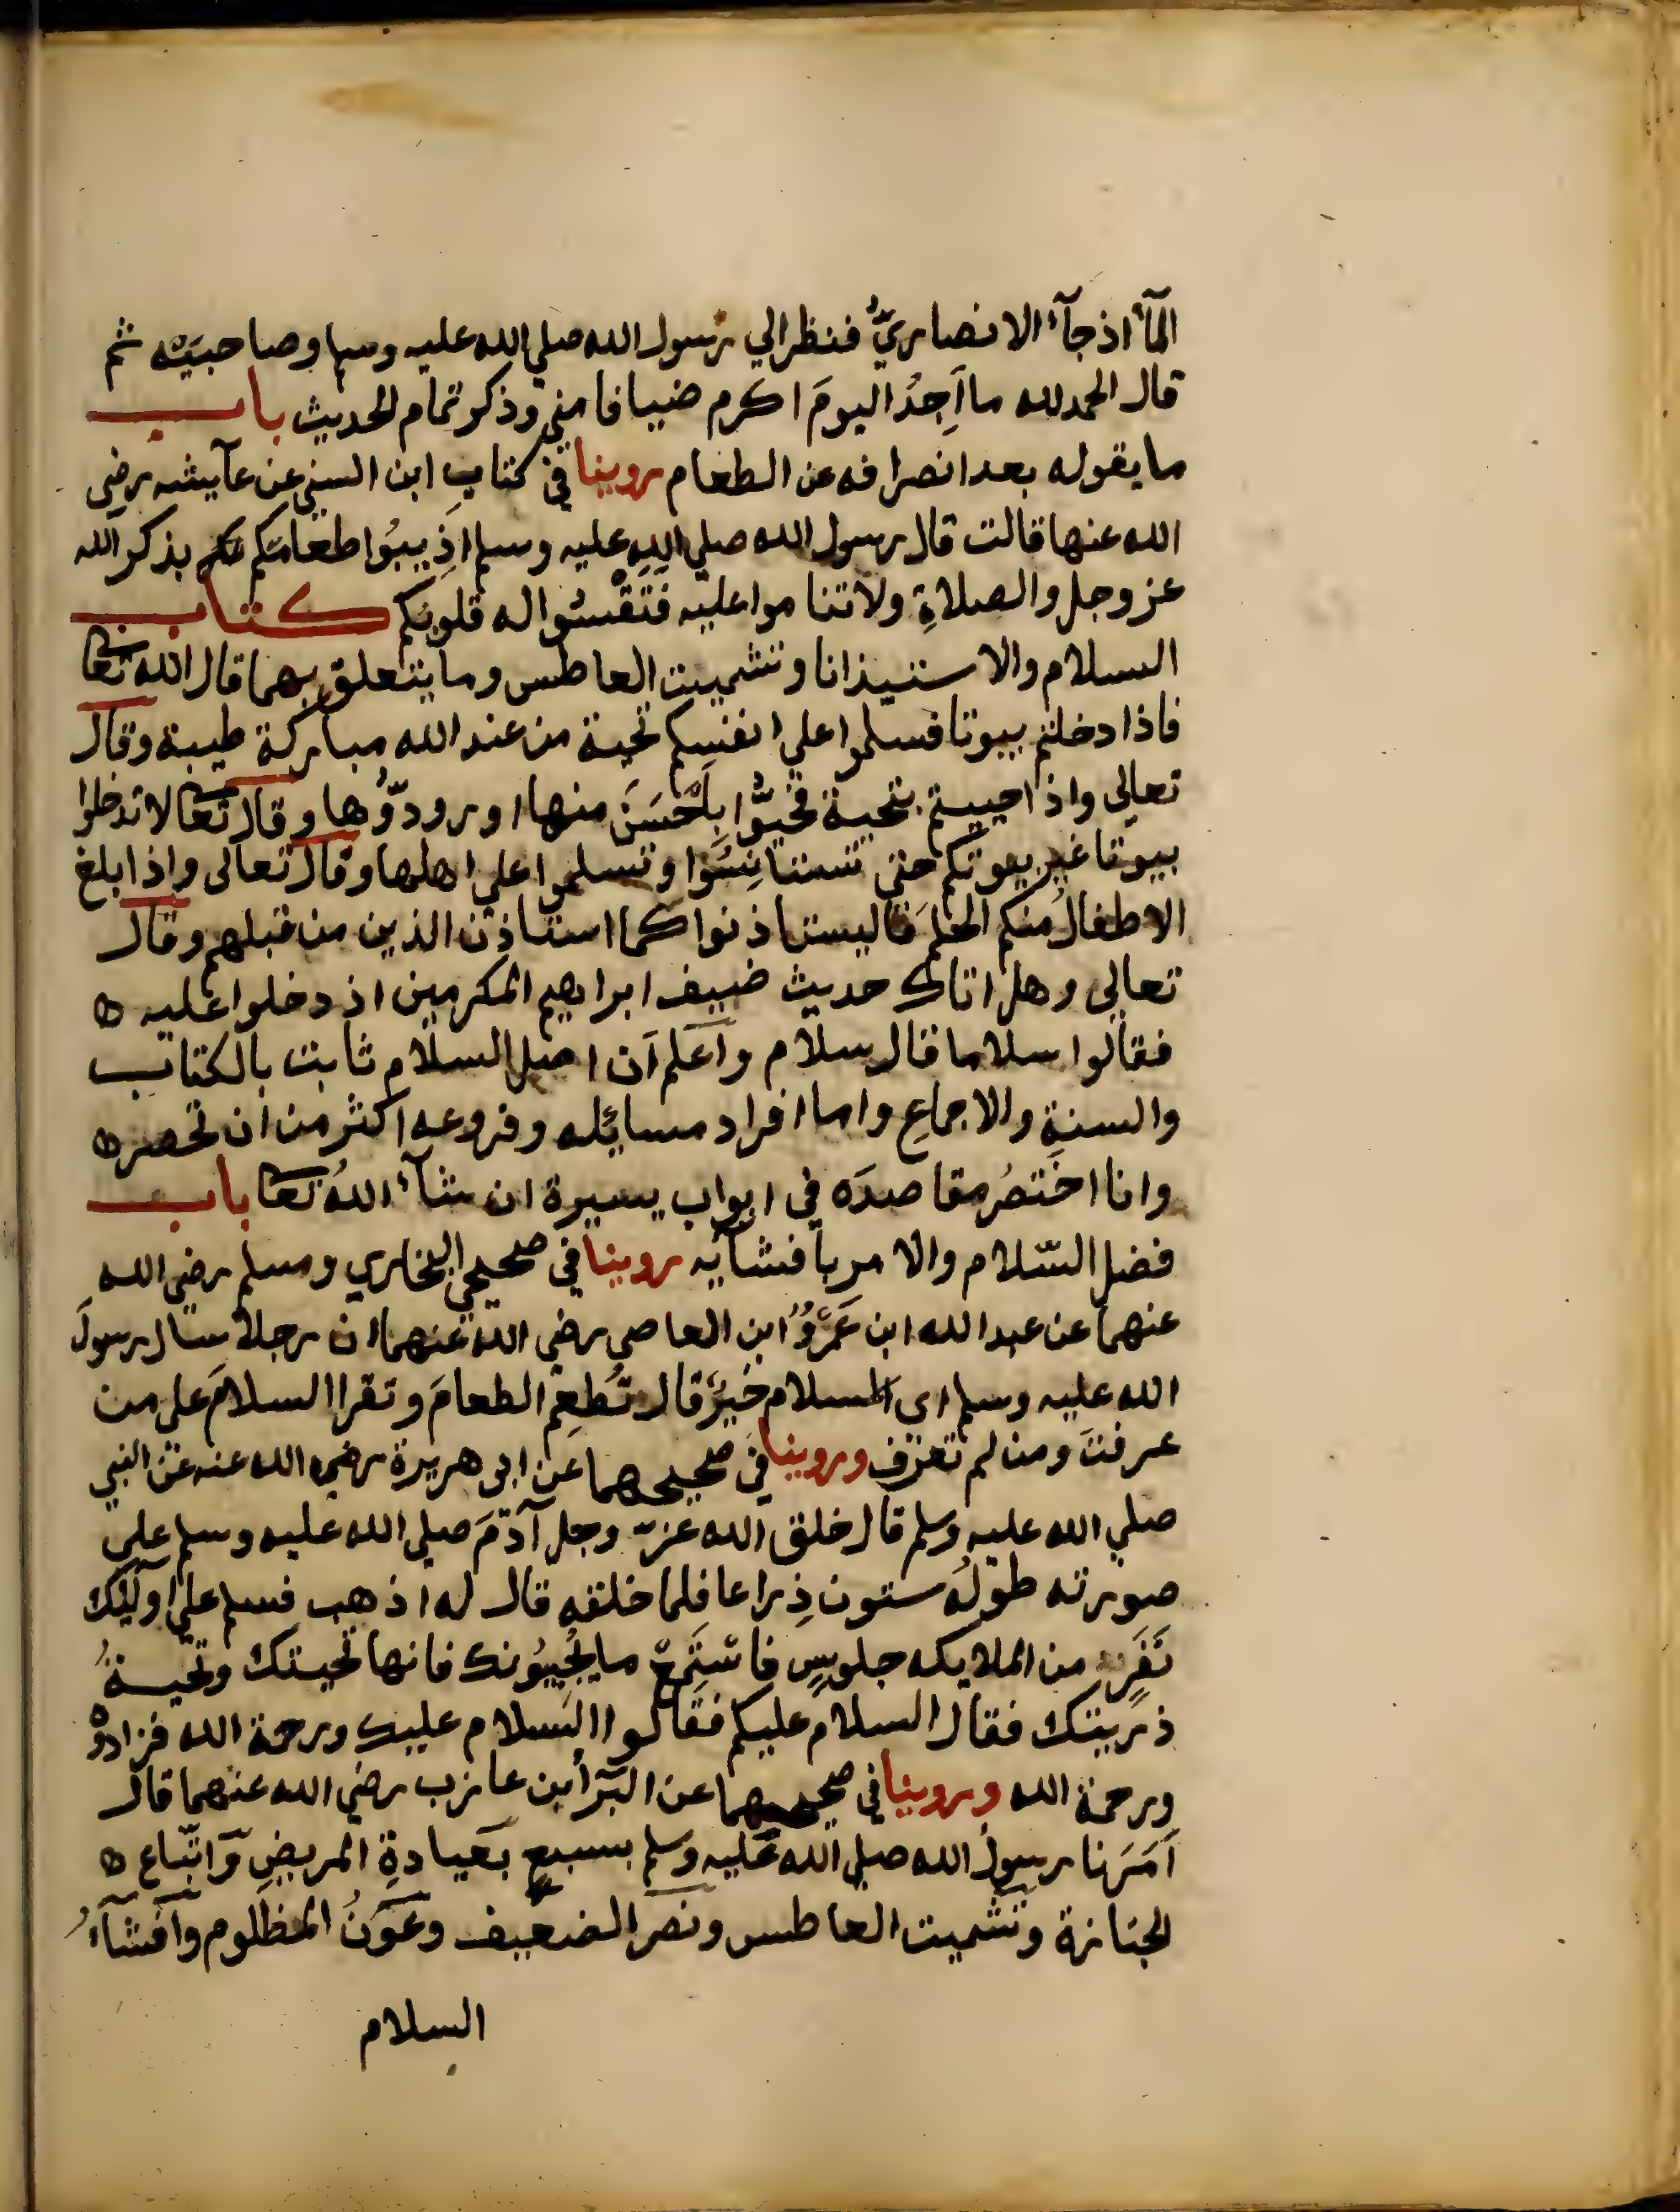 المآء اذ جآء الانصاريُّ فنظر الي رسول الله صلي الله عليه وسلم وصاحبيَه ثم
قال الحمد لله ما اَجِدُ اليومَ اكرم ضيافا مني وذكر تمام الحديث باب
ما يقوله بعد انصرافه عن الطعام روينا في كتاب ابن السني عن عآيشه رضي
الله عنها قالت قال رسول الله صلي الله عليه وسلم اذِيبُوا طعامَكم بذكر الله
عز وجل والصلاةِ ولا تناموا عليه فَتَقْسُوا له قلوبكم كتاب
السلام والاستيذانا وتشميت العاطس وما يتعلق بهما قال الله تعا
فاذا دخلتم بيوتا فسلموا على انفسِكم تحية من عند الله مباركة طيبة وقال
تعالي واذ احييتم بتحية فحيُّوا بِاَحْسَنَ منها او رودّوُها وقال تعا لا تدخلوا
بيوتا غير بيوتكم حتي تستانِسُوا وتسلموا علي اهلها وقال تعالى واذا بلغ
الاطفالُ منكم الحلمَ فاليستاذنوا كما استاذن الذين من قبلهم وقال
تعالي وهل اتاك حديث ضييف ابراهيم المكرمين اذ دخلوا عليه ه
فقالوا سلاما قال سلام وآعلم اَن اصل السلام ثابت بالكتاب
والسنةِ والاجماعِ واما افراد مسائِله وفروعه اكثر من ان تحصره
وانا اختصُر مقاصدَه في ابواب يسيرة ان شآءَ اللهُ تعا باب
فضل السّلام والامر بافشآيه روينا في صحيحي البخاري ومسلم رضي الله
عنهما عن عبد الله ابن عَمْرٍوُ ابن العاصي رضي الله عنهما ان رجلا سال رسولَ
الله عليه وسلم اى السلام خيرٌ قال تُطعِم الطعامَ وتقرا السلامَ على من
عرفتَ ومن لم تعرف وروينا في صحيحهما عن ابى هريرة رضي الله عنه عن النبي
صلي الله عليه وسلم قال خلق الله عزّ وجل آدمَ صلي الله عليه وسلم علي
صورته طولهُ ستون ذِراعا فلما خلقه قال له اذهب فسلم على اوليك
نَفَرٍ من الملايكه جلوسٍ فاسْتَمِعْ ما يُجِيبُونك فانها تحيتك وتحيةُ
ذريتك فقال السلام عليكم فقالوا السَلام عليك ورحمة الله فزادوْه
ورحمة الله وروينا في صحيحيهما عن البَرآ بن عازب رضي الله عنهما قال
اَمَرَنا رسولُ الله صلي الله عَليه وسلم بسبعٍ بعيادةِ المريضِ وَاتّباع ه
الجنازة وتشميت العاطس ونصرَ الضعيف وعَونَ المظلوم وافشآءُ
السلام